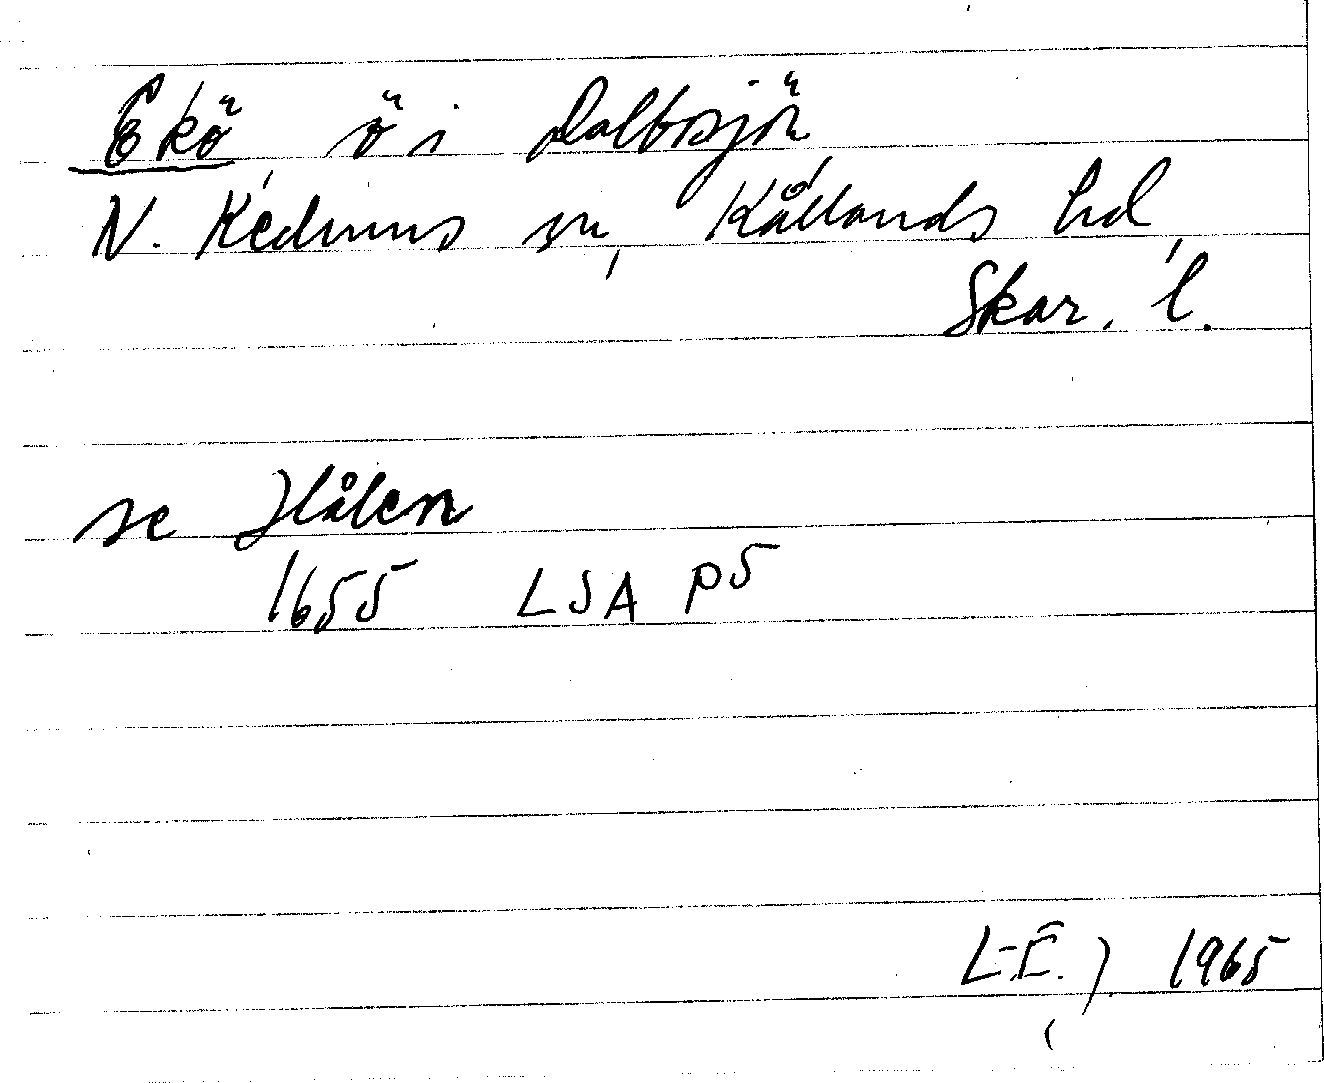 Ekö ö i Dalbosjön
N. Kedums sn, Kållands hd,
Skar. l.
se Hålen
1655 LSA P5
L-E. J. 1965